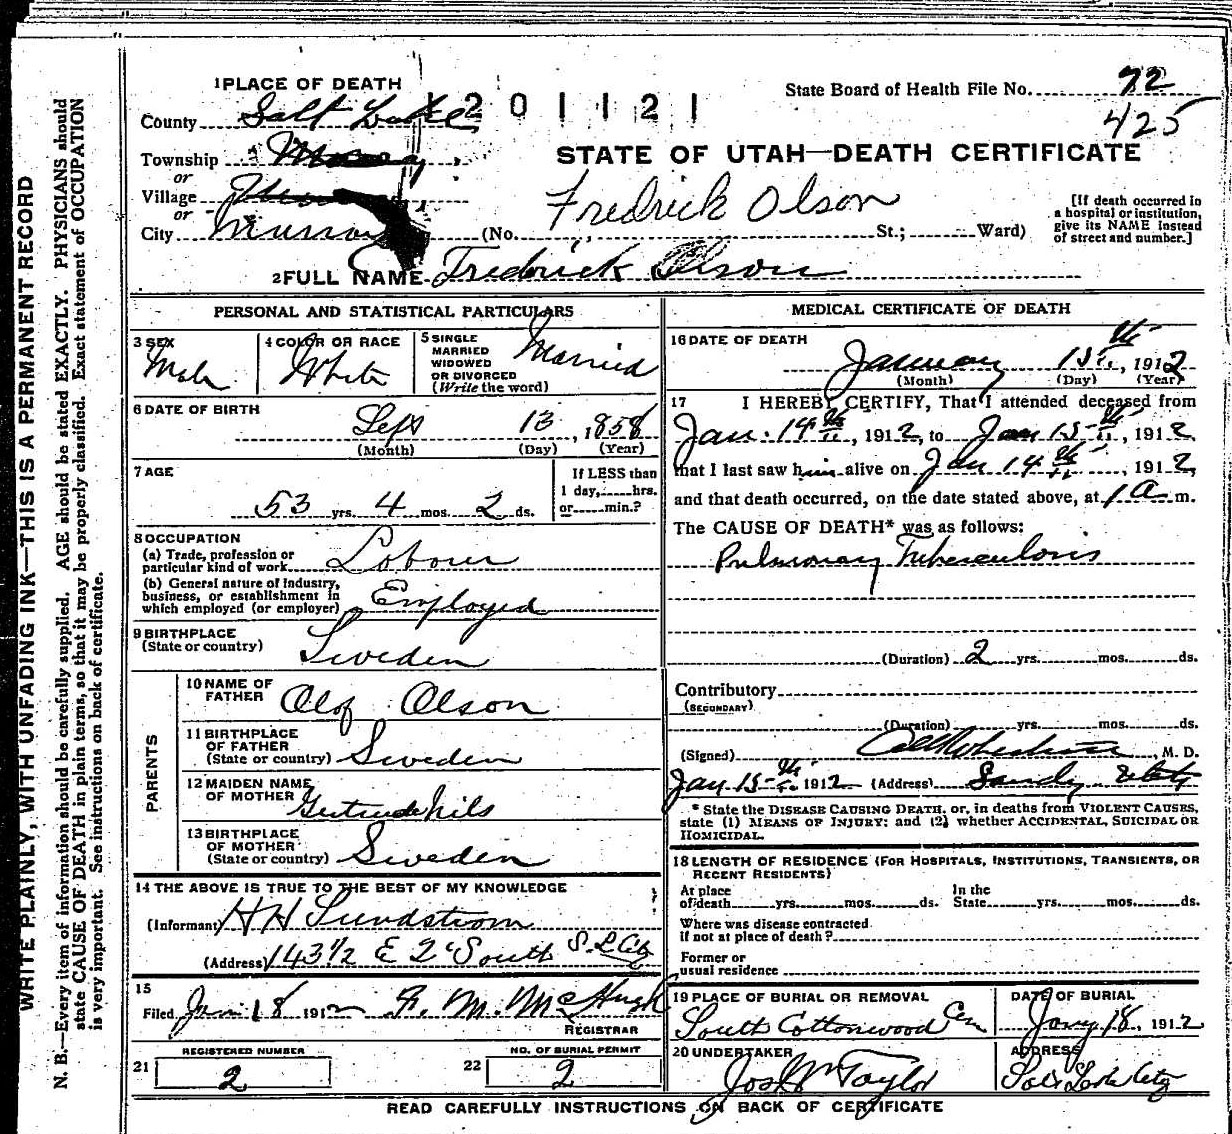 WRITE PLAINLY, WITH UNFADING INK—THIS IS A PERMANENT RECORD
N. B.—Every item of information should be carefully supplied. AGE should be stated EXACTLY. PHYSICIANS should
state CAUSE OF DEATH in plain terms, so that it may be properly classified. Exact statement of OCCUPATION
is very important. See instructions on back of certificate.
1 PLACE OF DEATH
1201121
State Board of Health File No. 72
425
County Salt Lake
Township
or
Village
or
City Murray
STATE OF UTAH—DEATH CERTIFICATE
Fredrick Olson
(No. St.; Ward)
[If death occurred in
a hospital or institution,
give its NAME instead
of street and number.]
2 FULL NAME Fredrick Olson
PERSONAL AND STATISTICAL PARTICULARS
3 SEX
Male
4 COLOR OR RACE
White
5 SINGLE
MARRIED
WIDOWED
OR DIVORCED
(Write the word)
Married
6 DATE OF BIRTH
Sept 13, 1858
(Month) (Day) (Year)
7 AGE
53 yrs. 4 mos. 2 ds.
If LESS than
1 day, hrs.
or min.?
8 OCCUPATION
(a) Trade, profession or
particular kind of work Labour
(b) General nature of Industry,
business, or establishment in
which employed (or employer) Employed
9 BIRTHPLACE
(State or country) Sweden
PARENTS
10 NAME OF
FATHER Olof Olson
11 BIRTHPLACE
OF FATHER
(State or country) Sweden
12 MAIDEN NAME
OF MOTHER Gertrude Nils
13 BIRTHPLACE
OF MOTHER
(State or country) Sweden
14 THE ABOVE IS TRUE TO THE BEST OF MY KNOWLEDGE
(Informant) H H Sundstrom
(Address) 143 1/2 E 2d South S. L. City
15
Filed Jan 18 1912 H. M. McHugh
REGISTRAR
21 REGISTERED NUMBER
2
22 NO. OF BURIAL PERMIT
2
MEDICAL CERTIFICATE OF DEATH
16 DATE OF DEATH
January 15th, 1912
(Month) (Day) (Year)
17 I HEREBY CERTIFY, That I attended deceased from
Jan. 14th, 1912, to Jan 15th, 1912,
that I last saw him alive on Jan 14th, 1912,
and that death occurred, on the date stated above, at 1 a m.
The CAUSE OF DEATH* was as follows:
Pulmonary Tuberculosis
(Duration) 2 yrs. mos. ds.
Contributory
(SECONDARY)
(Duration) yrs. mos. ds.
(Signed) M. D.
Jan 15th 1912 (Address) Sandy Utah
* State the DISEASE CAUSING DEATH, or, in deaths from VIOLENT CAUSES,
state (1) MEANS OF INJURY; and (2) whether ACCIDENTAL, SUICIDAL OR
HOMICIDAL.
18 LENGTH OF RESIDENCE (FOR HOSPITALS, INSTITUTIONS, TRANSIENTS, OR
RECENT RESIDENTS)
At place
of death yrs. mos. ds.
In the
State yrs. mos. ds.
Where was disease contracted
if not at place of death?
Former or
usual residence
19 PLACE OF BURIAL OR REMOVAL
South Cottonwood Cem
DATE OF BURIAL
Jany 18, 1912
20 UNDERTAKER
Jos Wm Taylor
ADDRESS
Salt Lake City
READ CAREFULLY INSTRUCTIONS ON BACK OF CERTIFICATE